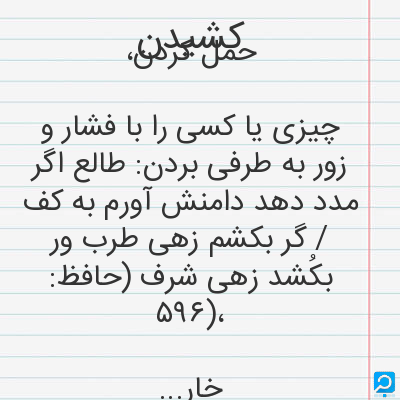 کشیدن
حمل کردن،
چیزی یا کسی را با فشار و
زور به طرفی بردن: طالع اگر
مدد دهد دامنش آورم به کف
/ گر بکشم زهی طرب ور
بکُشد زهی شرف (حافظ:
۵۹۶)،
خار...